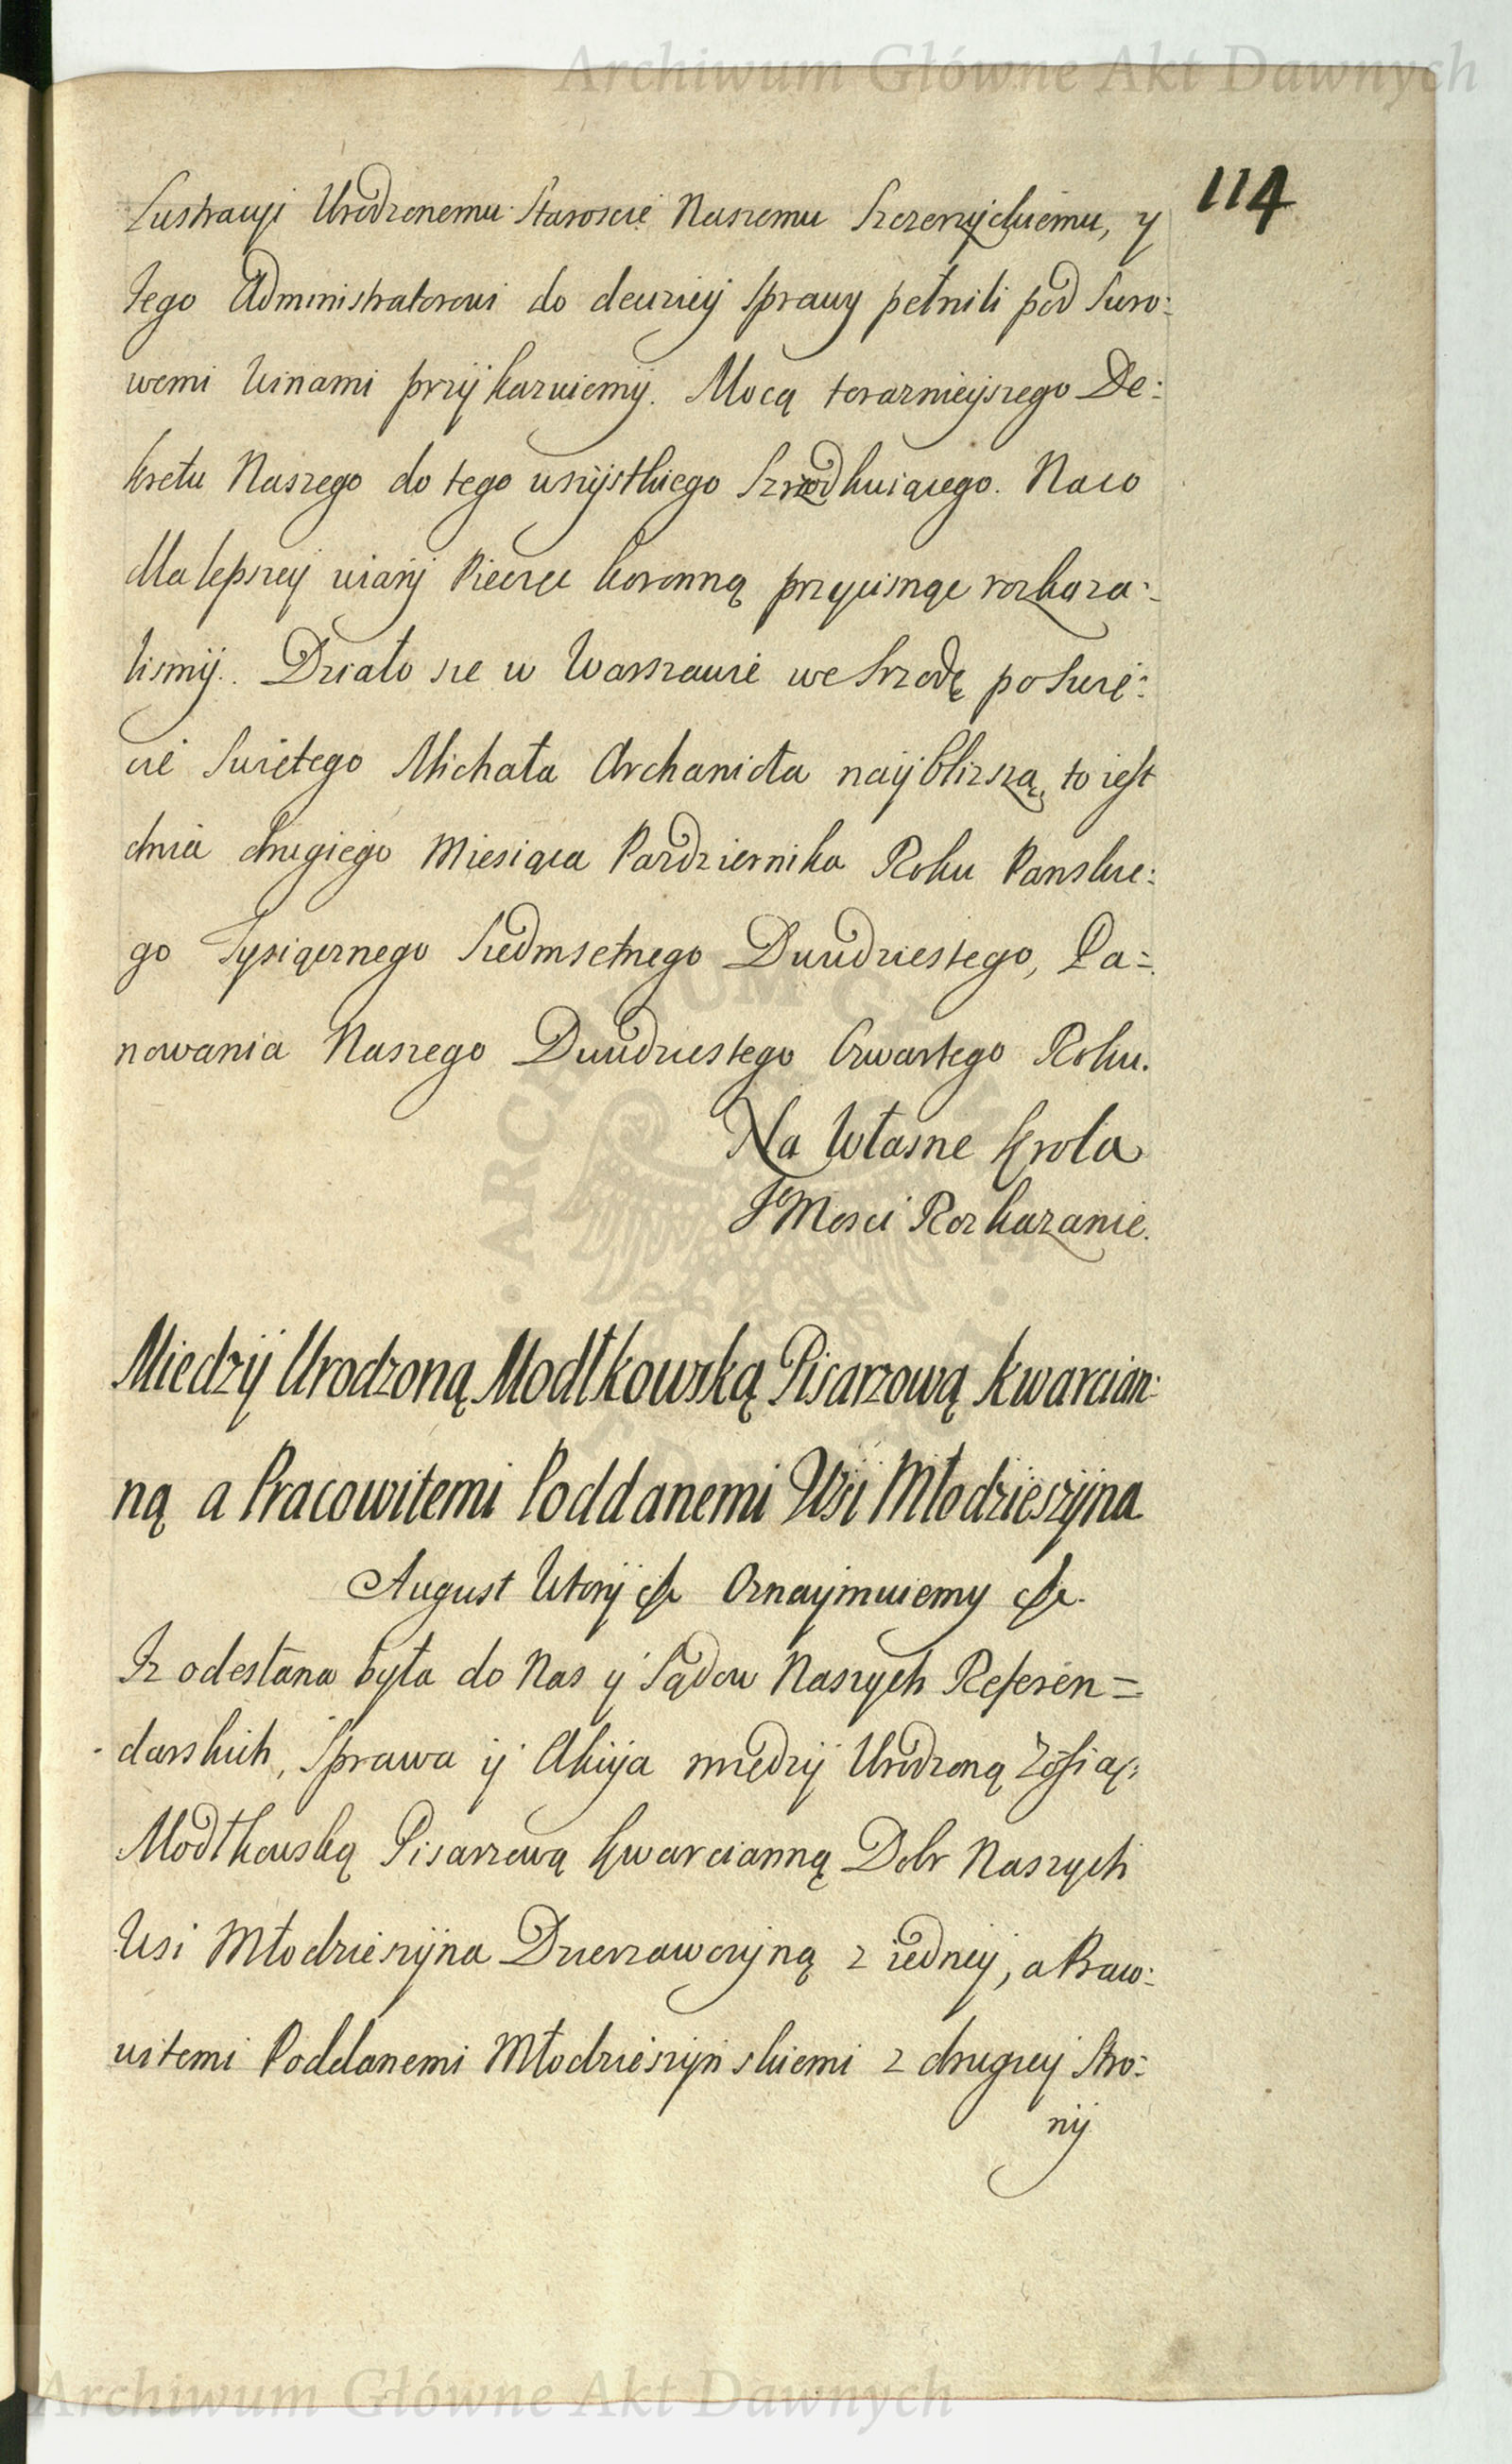 Archiwum Główne Akt Dawnych
114
Lustracyi Urodzonemu Staroscie Naszemu Szczerzyckiemu, y
Jego Administratorowi do dewziey Sprawy pełnili pod Suro:
wemi Winami przÿkazuiemÿ. Mocą terazniejszego De:
kretu Naszego do tego wszÿstkiego Szrodkuiącego. Naco
dla lepszey wiarÿ Pieczęc koronną przycisnąc rozkaza:
lismÿ. Działo sie w Warszawie we Srzodę po Swię:
cie Swiętego Michała Archanioła nayblizszą, to iest
dnia drugiego Miesiąca Pazdziernika Roku Panskie:
go Tysiącznego Siedmsetnego Dwudziestego, Pa=
nowania Naszego Dwudziestego Czwartego Roku.
Na Własne Krola
JeMosci Rozkazanie.
Miedzÿ Urodzoną Modłkowską Pisarzową Kwarcian:
ną a Pracowitemi Poddanemi Wsi Młodzieszÿna
August Wtorÿ &c Oznaymuiemy &c.
Iz odesłana była do Nas ÿ Sądow Naszych Referen=
darskich, Sprawa ÿ Akcyja międzÿ Urodzoną Zofią
Modłkowską Pisarzową Kwarcianną Dobr Naszych
Wsi Młodzieszÿna Dzierzawczÿną z iedney, a Praco:
witemi Poddanemi Młodzieszÿnskiemi z drugiey Stro:
nÿ
Archiwum Główne Akt Dawnych